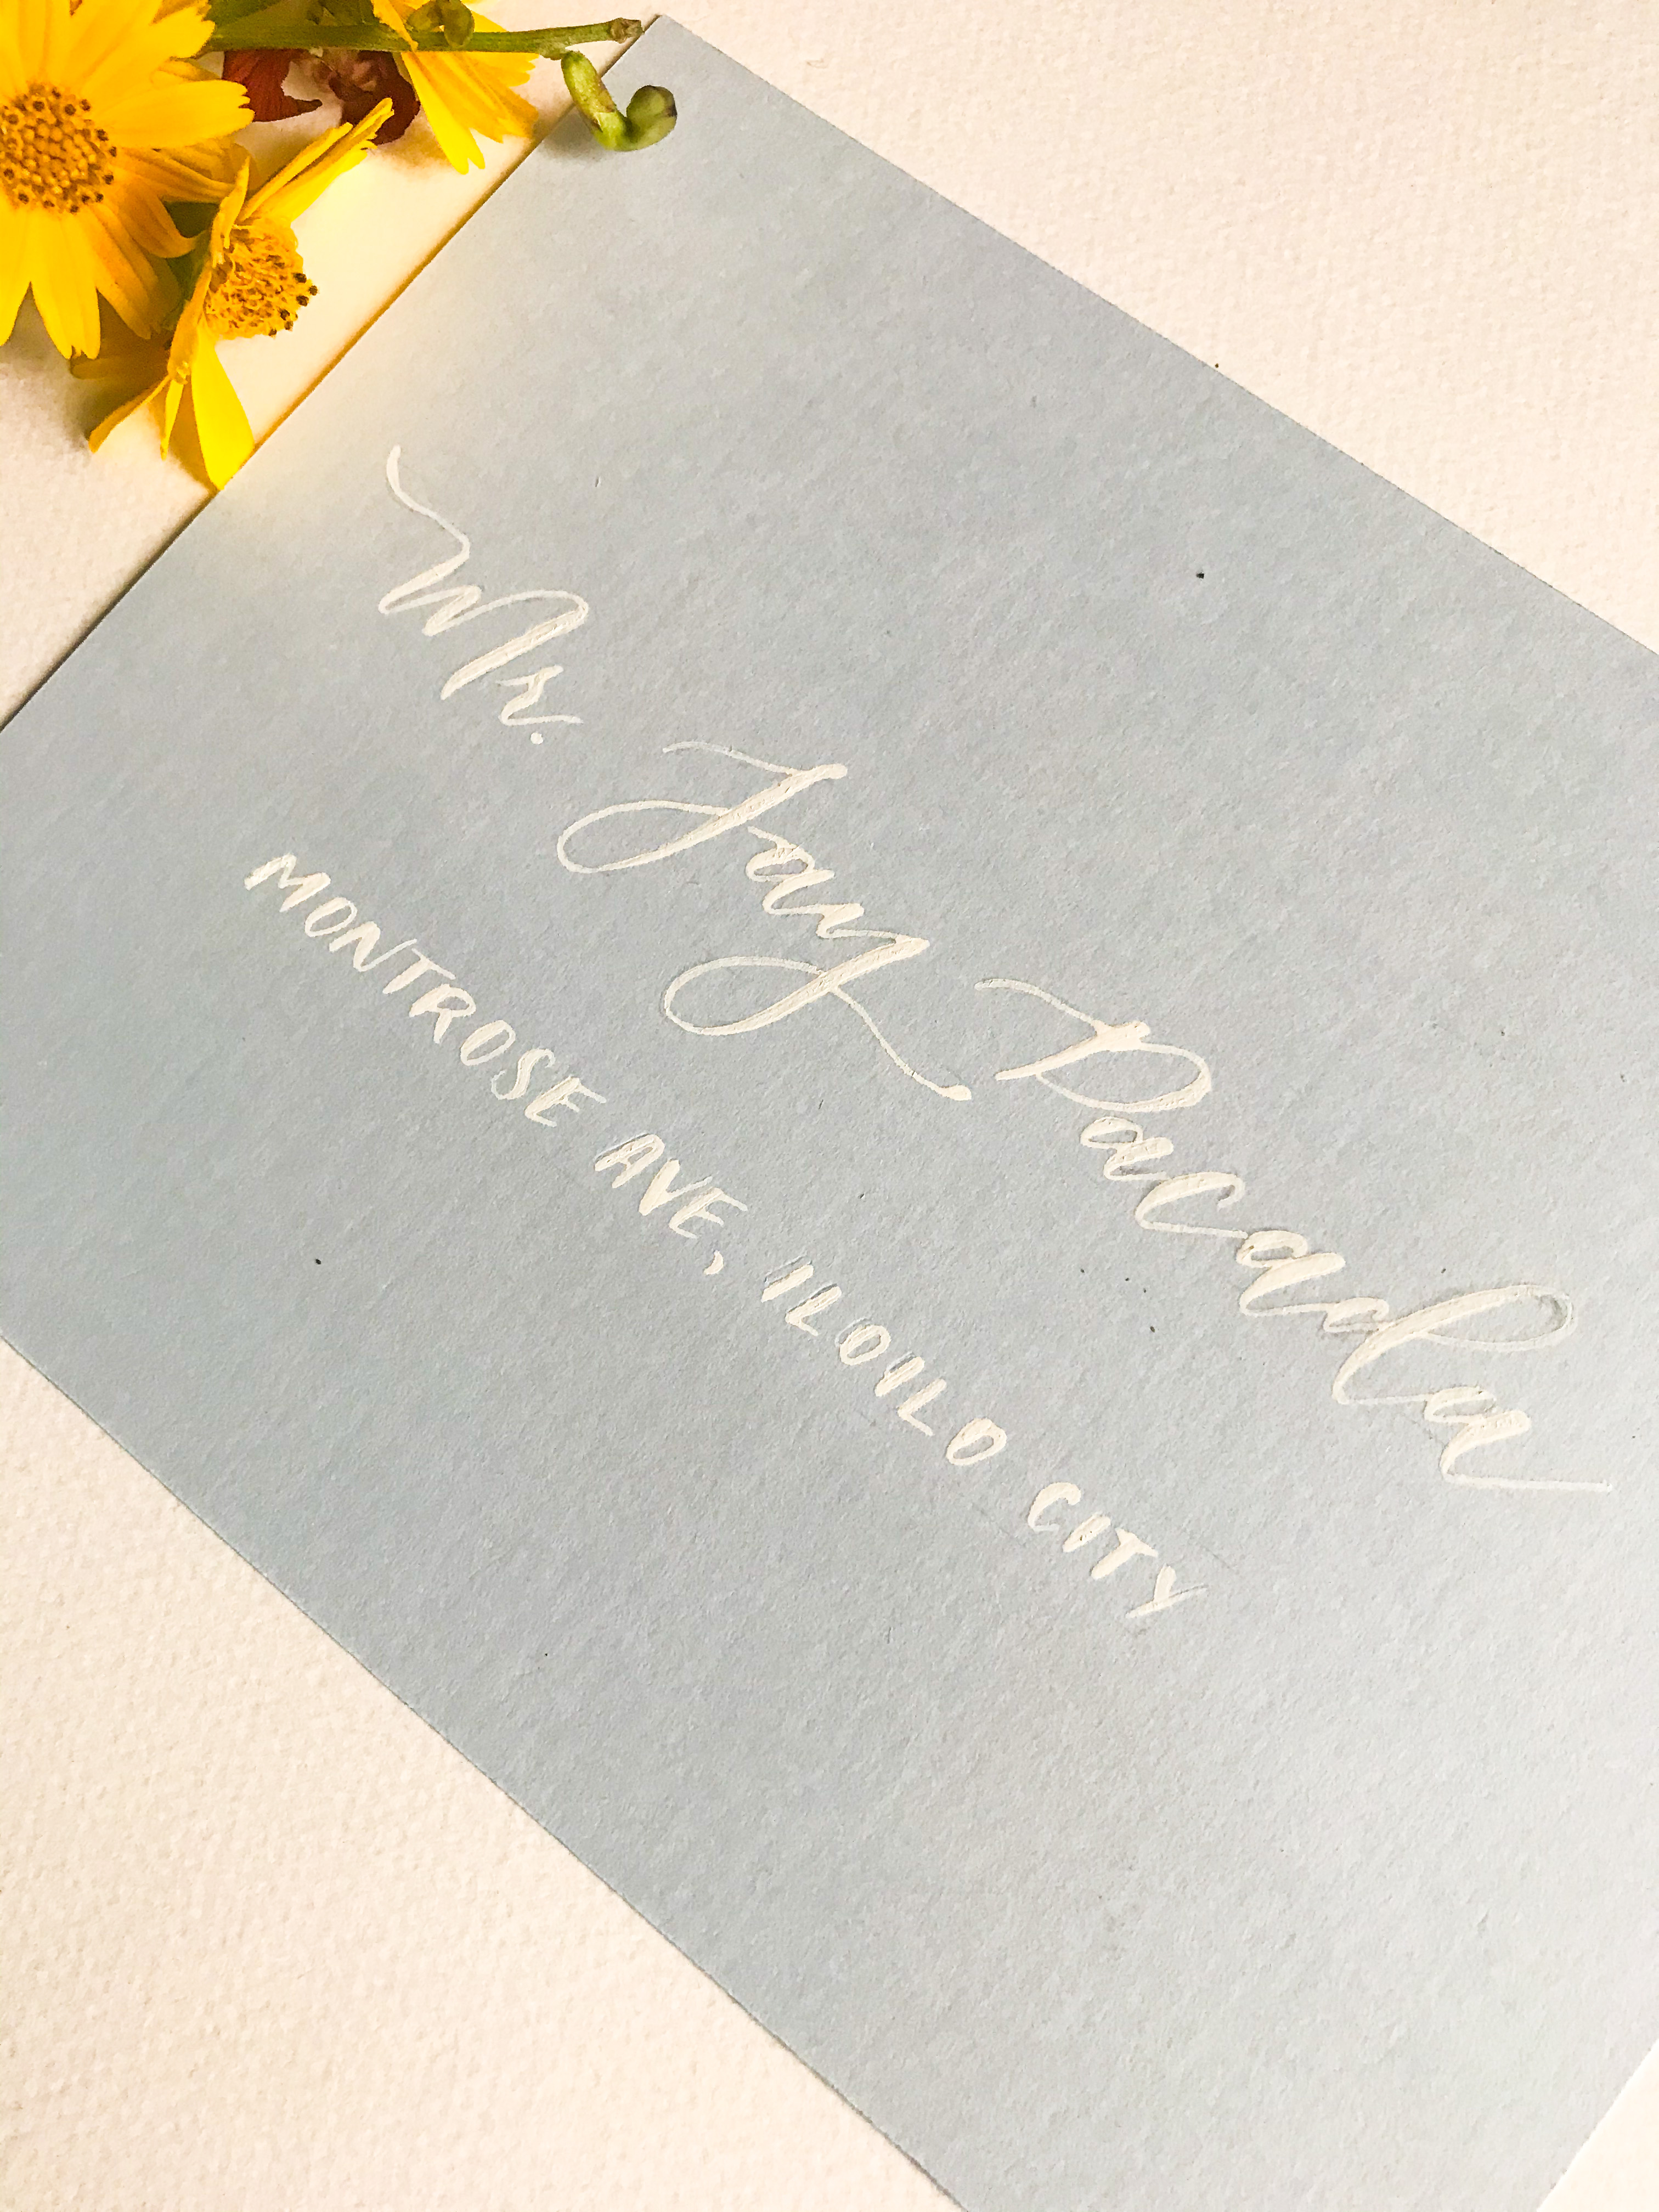 Mr. Jay Dacala
MONTROSE AVE, ILOILO CITY